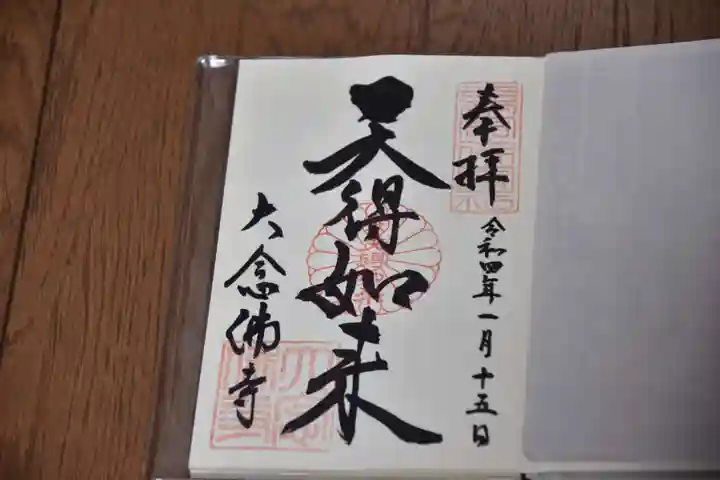 奉拝
令和四年一月十五日
天得如来
大念佛寺